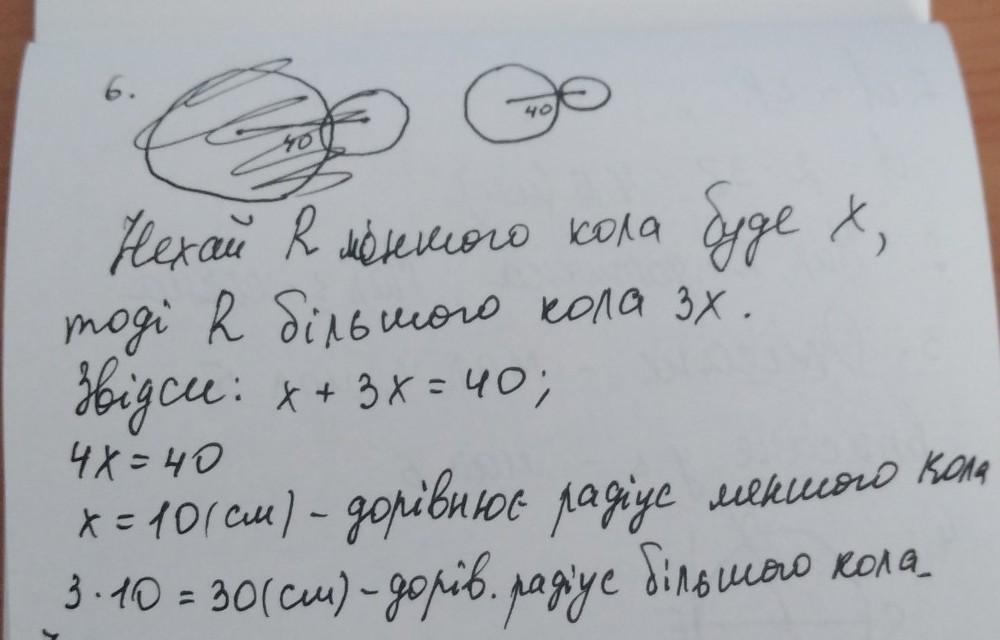 6.
40
40
Нехай R меншого кола буде x,
тоді R більшого кола 3x.
Звідси: x + 3x = 40;
4x = 40
x = 10(см) - дорівнює радіус меншого кола
3 · 10 = 30(см) - дорів. радіус більшого кола